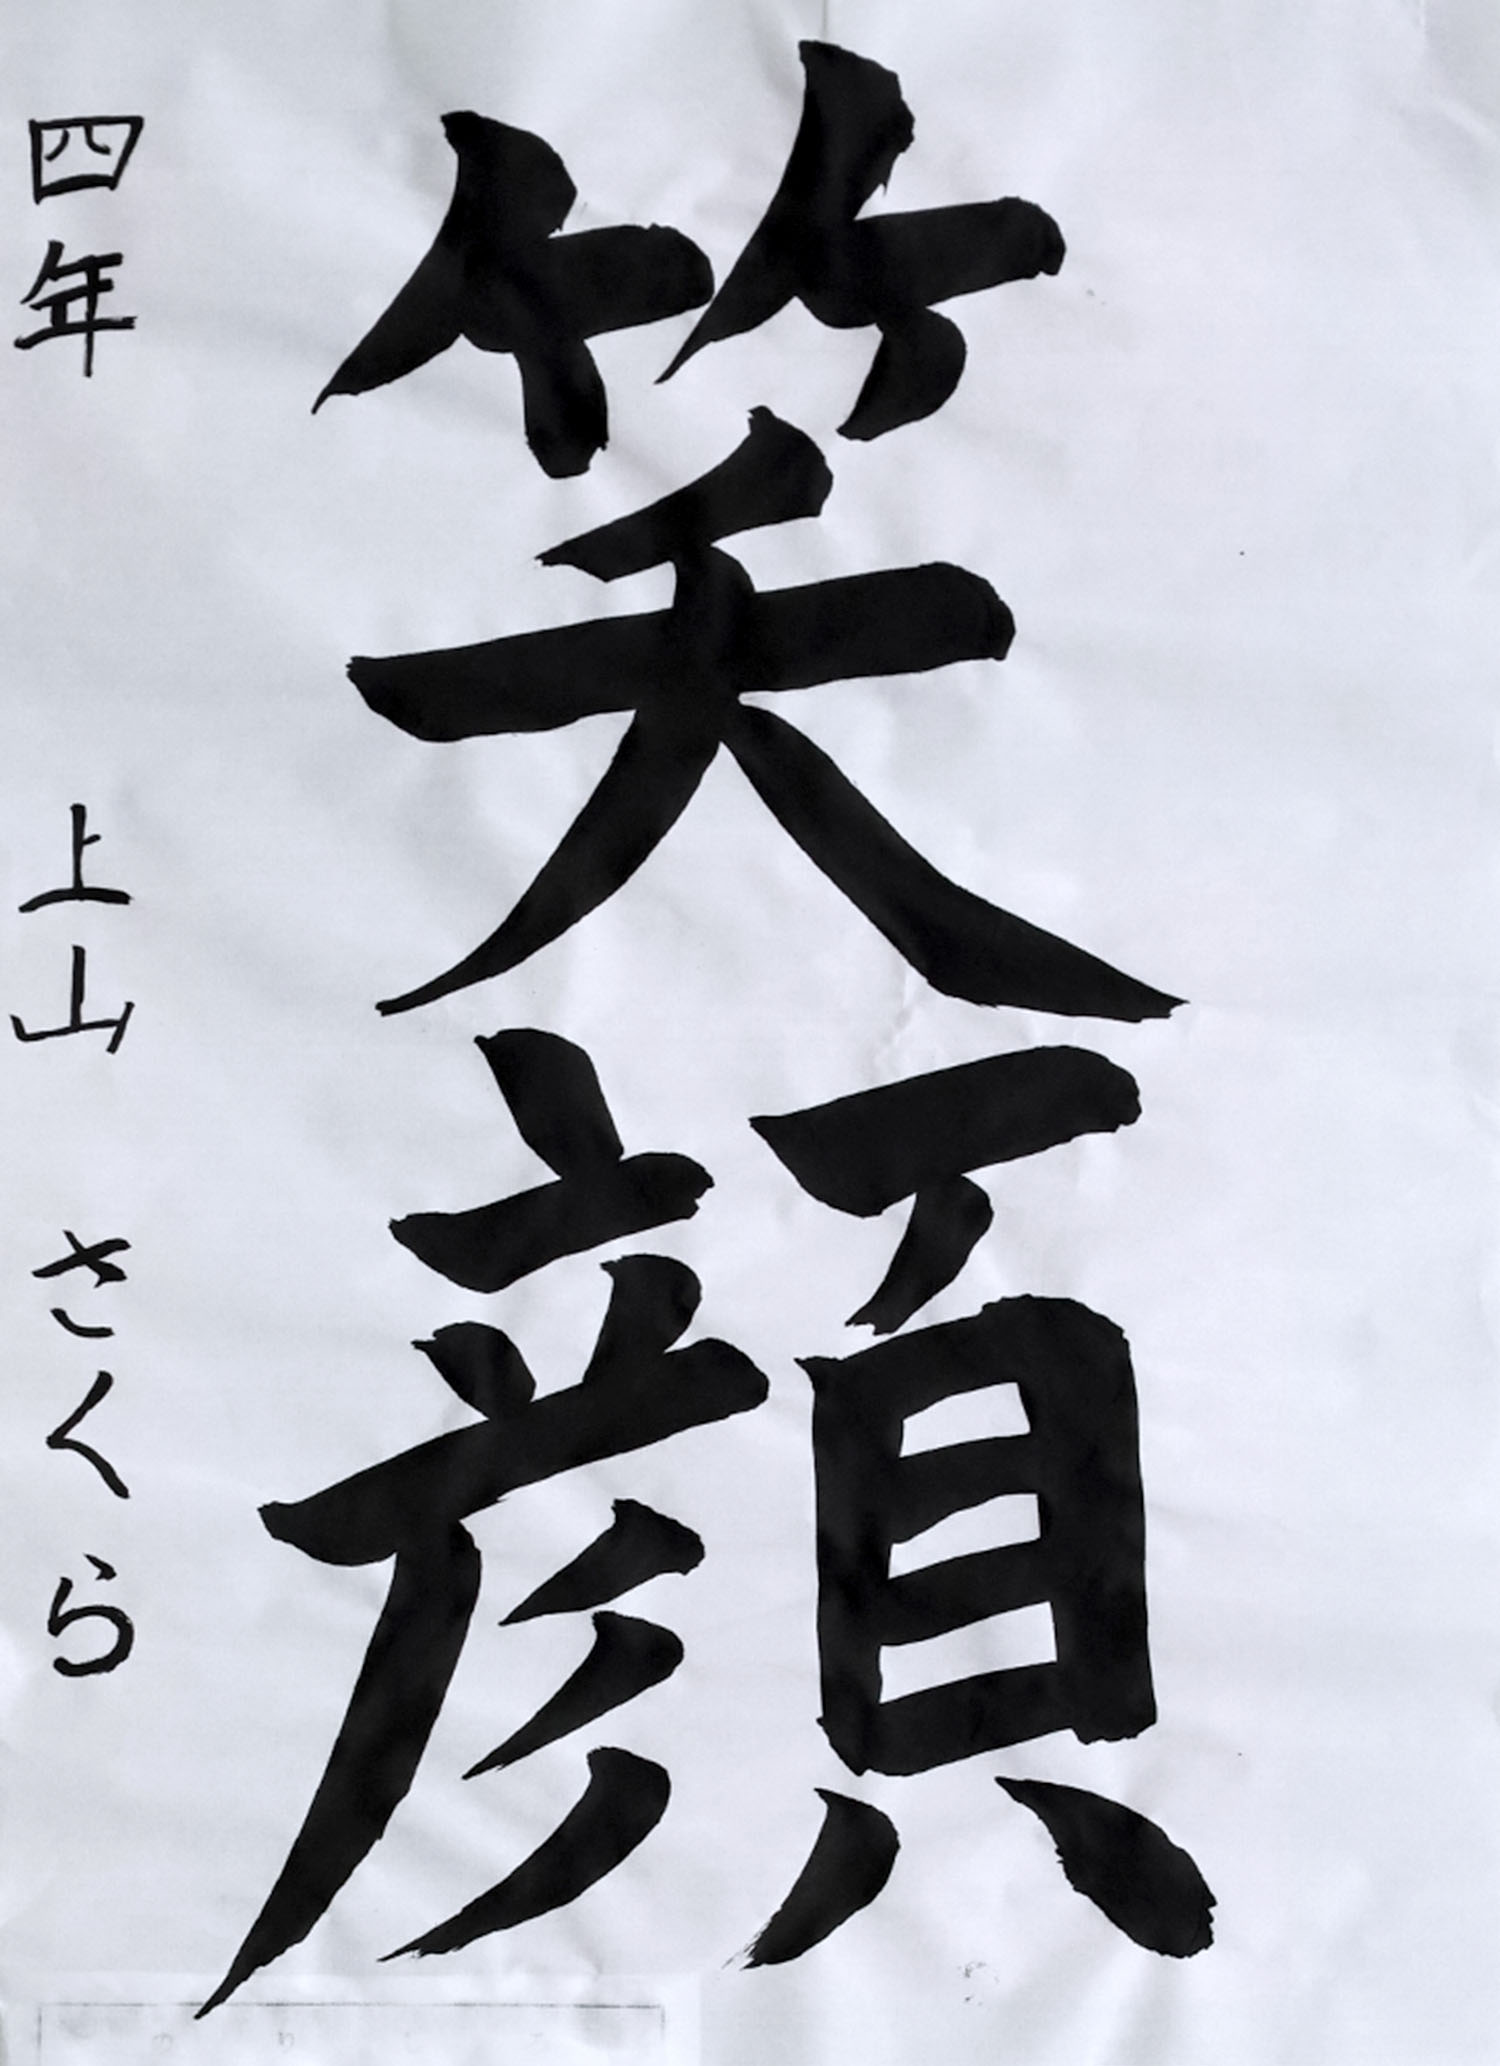 笑顔
四年 上山 さくら